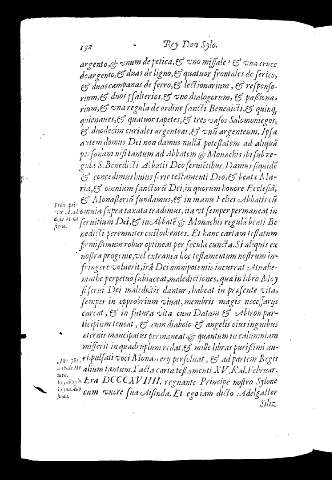 132 Rey Don Sylo.
argento, & vnum de petica, & vno missale & vna cruce
de argento, & duas de ligno, & quatuor frontales de serico,
& duos campanas de ferro, & lectionarium, & responso-
rium, & duos psalterios, & vno dialogorum, & passiona-
rium, & vna regula de ordine sancti Benedicti, &
& quatuor tapetes, & tres vasos Salomoniegos,
& duodecim curiales argenteas, & vnū argenteum. Ipsa
autem domus Dei non damus nullā potestatem ad aliquā
personam nisi tantum ad Abbatem & Monachis ibi sub re-
gula S. Benedicti Abbatis Deo seruientibus. Damus siquidē
& concedimus huius serie testamenti Deo, & beatæ Ma-
riæ, & omnium sanctorū Dei, in quorum honore Ecclesiā,
& Monasteriū fundamus, & in manu Felici Abbatis cū
omnia supra taxata tradimus, ita vt semper permaneat in
seruitium Dei, & in Abbatē & Monachis regulā beati Be-
nedicti perenniter custodientes. Et hanc cartam testatum
firmissimum robur optineat per secula cuncta. Si aliquis ex
nostra progenie, vel extranea hoc testamentum nostrum in-
fringere voluerit, irā Dei omnipotentis incurrat Anathe-
mathe perpetuo subiaceat, maledictiones, quæ in libro Moy
si serui Dei maledictis dantur, habeat in presente vita,
semper in opprobrium viuat, membris magis necessarijs
careat, & in futura vita cum Datam & Abiron par-
ticipium teneat, & cum diabolo & angelis eius ingnibus
eternis mancipatus permaneat & quantum in calumniam
misserit in quadruplum redat, & mille libras purissimi au-
ri pulsati voci Monasterij persoluat, & ad partem Regis
aliam tantum. Facta carta testamenti XV. Kal. Februar.
Era DCCCXVIIII. regnante Principe nostro Sylone
cum vxore sua Atisinda. Et ego iam dicto Adelgaster
Siliz